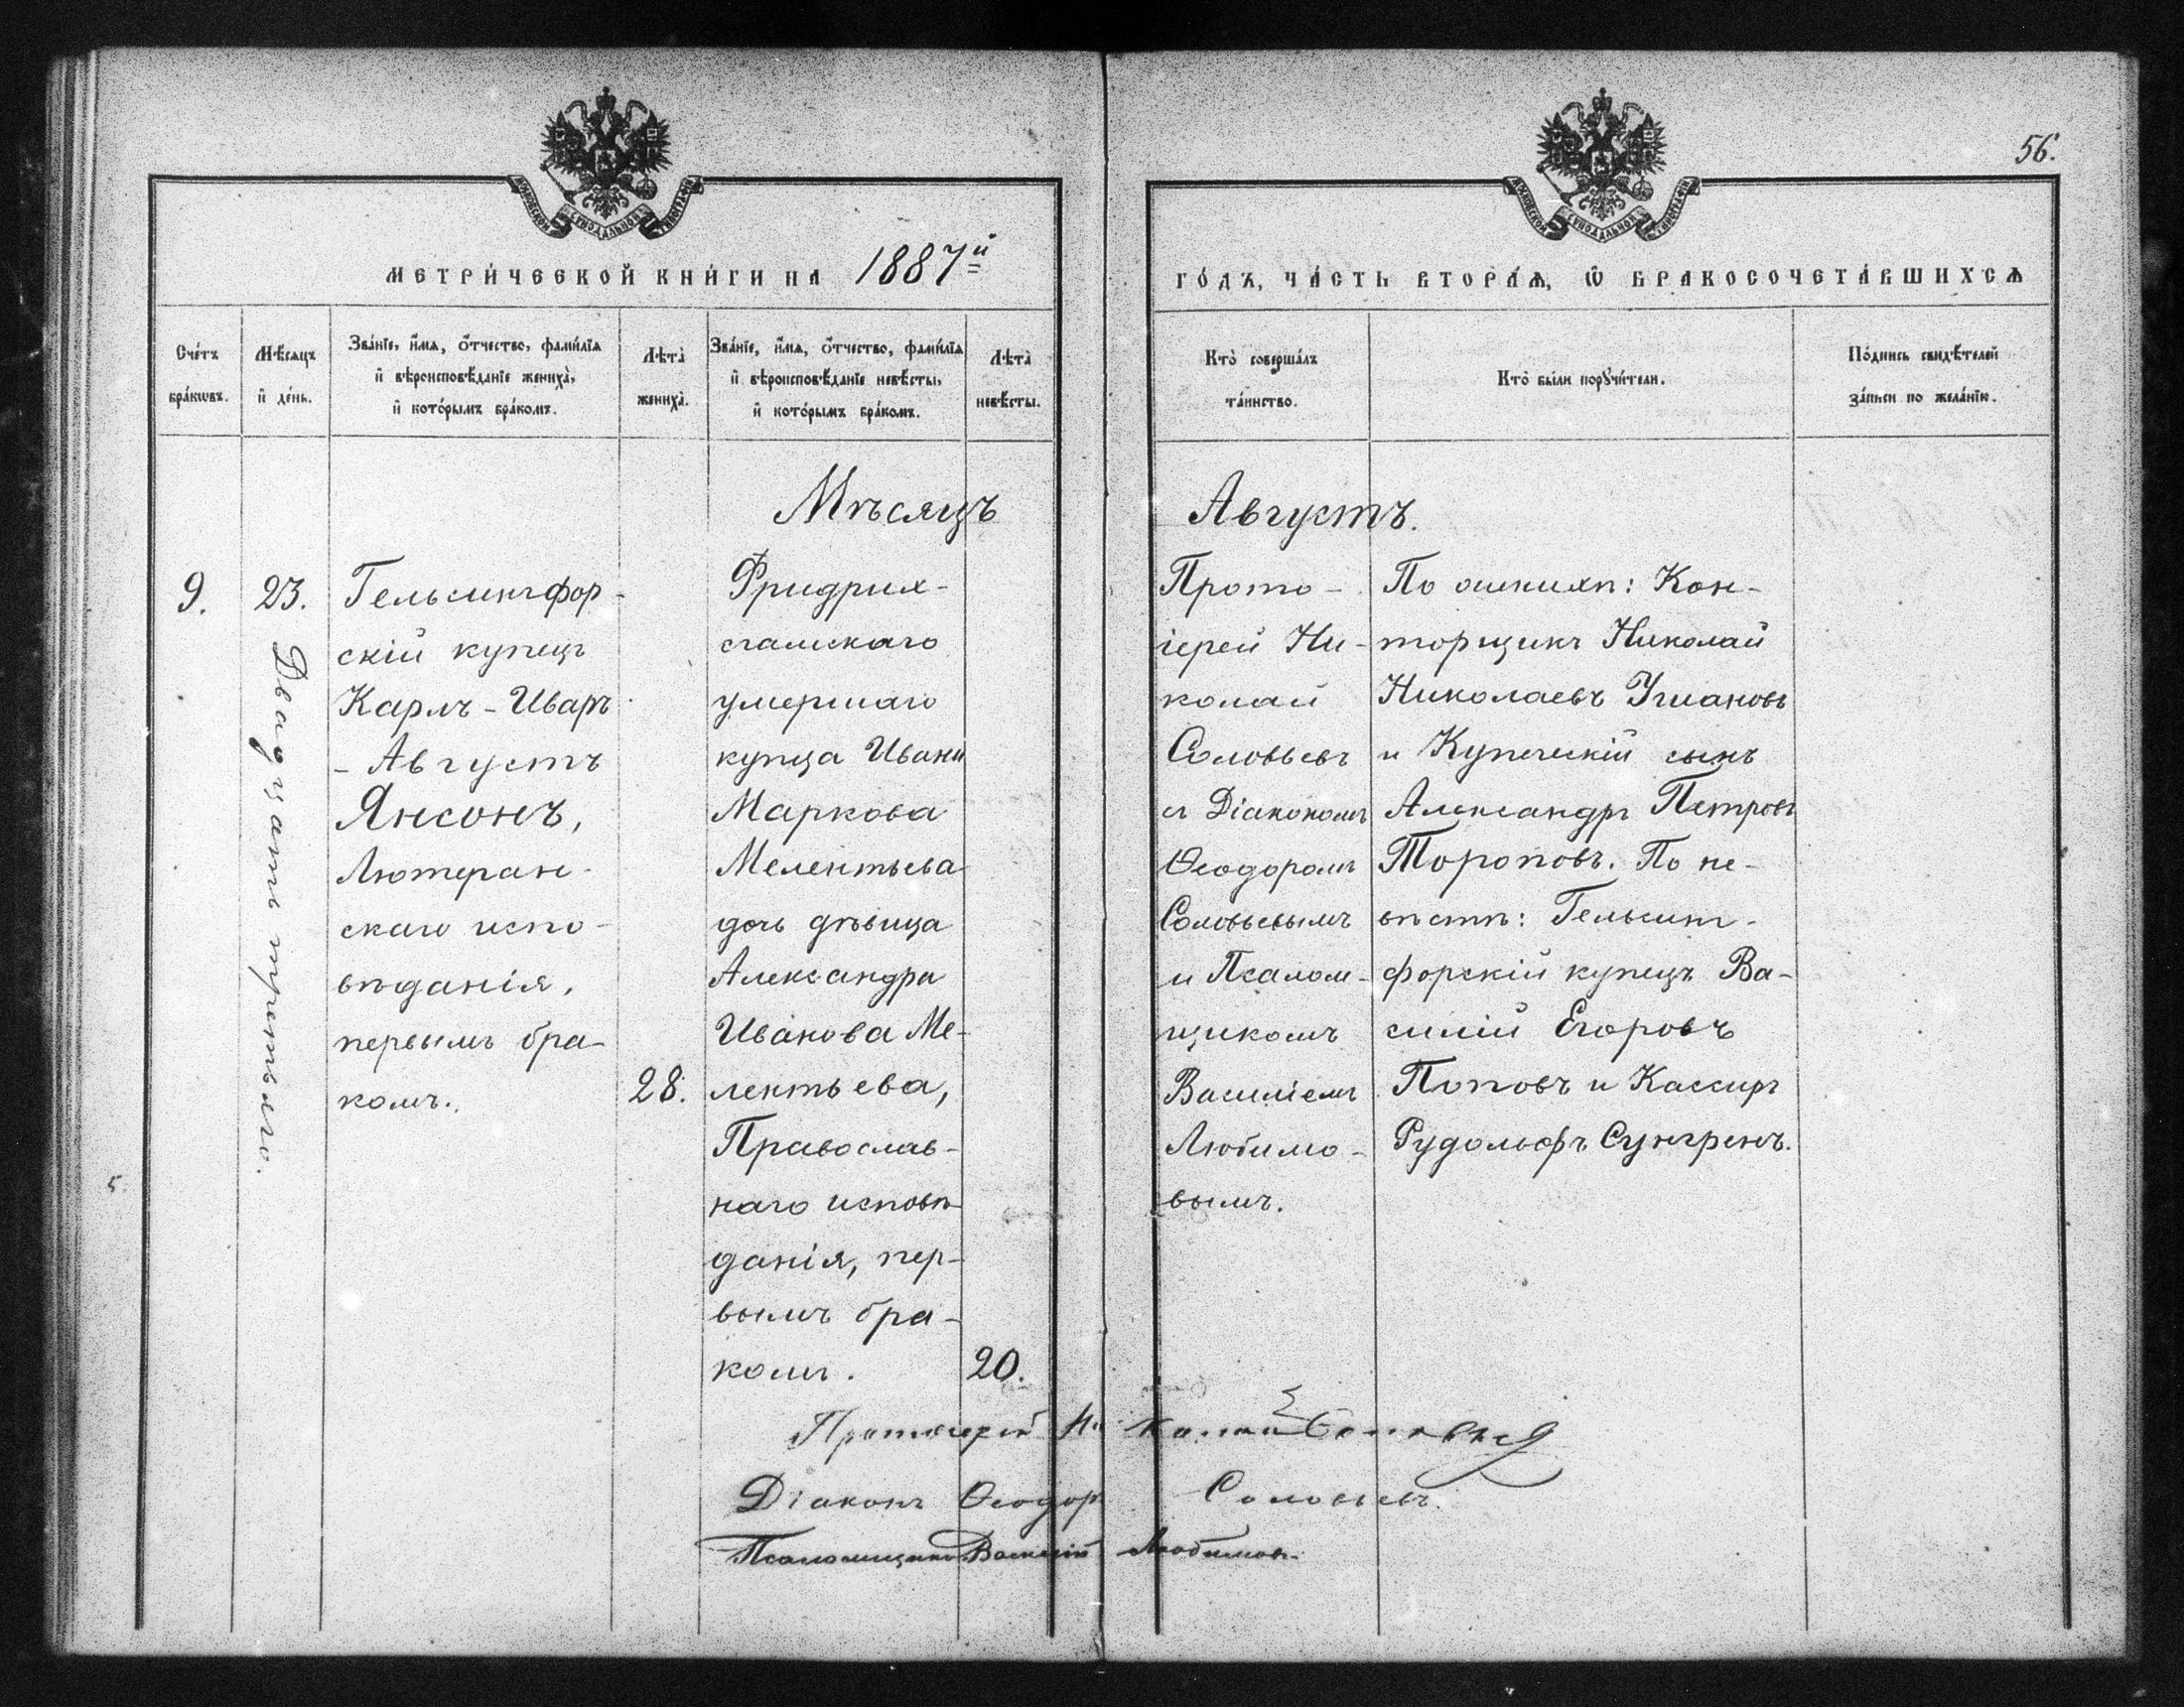 56.
МЕТРИ́ЧЕСКОЙ КНИ́ГИ НА 1887й
ГО́ДЪ, ЧА́СТЬ ВТОРА́Ѧ, Ѽ БРАКОСОЧЕТА́ВШИХСѦ
Сче́тъ
бра́кѡвъ.
Мѣ́сяцъ
и҆ де́нь.
Зва́нїе, и҆́мѧ, ѻ҆́тчество, фамѝлїѧ
и҆ вѣроисповѣ́данїе жениха̀,
и҆ кото́рымъ бра́комъ.
Лѣта̀
жениха̀.
Зва́нїе, и҆́мѧ, ѻ҆́тчество, фамѝлїѧ
и҆ вѣроисповѣ́данїе невѣ́сты,
и҆ кото́рымъ бра́комъ.
Лѣта̀
невѣ́сты.
Кто̀ соверша́лъ
та́инство.
Кто̀ бы́ли порꙋчи́тели.
По́дпись свидѣ́телей
за́писи по жела́нїю.
Мѣсяцъ Августъ.
9.
23.
Двадцать третьяго.
Гельсингфор-
скій купецъ
Карлъ-Иваръ
-Августъ
Янсонъ,
Лютеран-
скаго испо-
вѣданія,
первымъ бра-
комъ.
28.
Фридрих-
сгамскаго
умершаго
купца Ивана
Маркова
Мелентьева
дочь дѣвица
Александра
Иванова Ме-
лентьева,
Православ-
наго исповѣ-
данія, пер-
вымъ бра-
комъ.
20.
Прото-
іерей Ни-
колай
Соловьевъ
съ Діакономъ
Ѳеодоромъ
Соловьевымъ
и Псалом-
щикомъ
Василіемъ
Любимо-
вымъ.
По женихѣ: Кон-
торщикъ Николай
Николаевъ Ушановъ
и Купеческій сынъ
Александръ Петровъ
Тороповъ. По не-
вѣстѣ: Гельсинг-
форскій купецъ Ва-
силій Егоровъ
Поповъ и Кассиръ
Рудольфъ Сунгренъ.
Протоіерей Николай Соловьев
Діаконъ Ѳеодоръ Соловьевъ.
Псаломщикъ Василій Любимовъ.